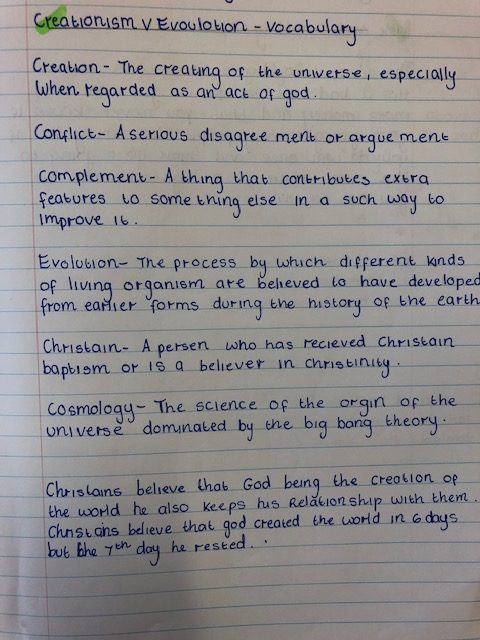 Creationism V Evoulotion - Vocabulary
Creation - The creating of the universe, especially
When regarded as an act of god.
Conflict - A serious disagree ment or argue ment
Complement - A thing that contributes extra
features to some thing else in a such way to
improve it.
Evolution - The process by which different kinds
of living organism are believed to have developed
from earlier forms during the history of the earth
Christain - A persen who has recieved Christain
baptism or is a believer in Christinity.
Cosmology - The science of the orgin of the
universe dominated by the big bang theory.
Christains believe that God being the creation of
the world he also keeps his Relationship with them.
Christains believe that god created the world in 6 days
but the 7th day he rested.